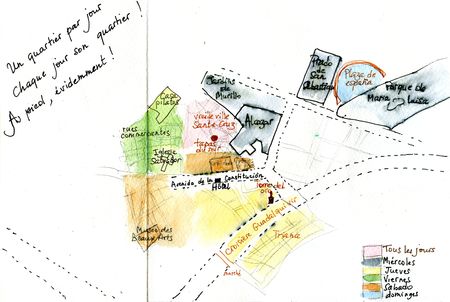 Un quartier par jour
Chaque jour son quartier !
A pied, évidemment !
Casa
pilatos
Jardins
de
Murillo
Prado
de San
Sebastian
Plaza de
españa
Parque de
Maria
Luisa
vieille ville
Santa Cruz
Alcazar
rues
commercantes
Iglesia
Salvador
tapas
Avenida de la Constitución
Hôtel
Torre del
oro
Croisière Guadalquivir
Museo des
Beaux Arts
Triana
marché
Tous les jours
Miércoles
Jueves
Viernes
Sabado
domingos